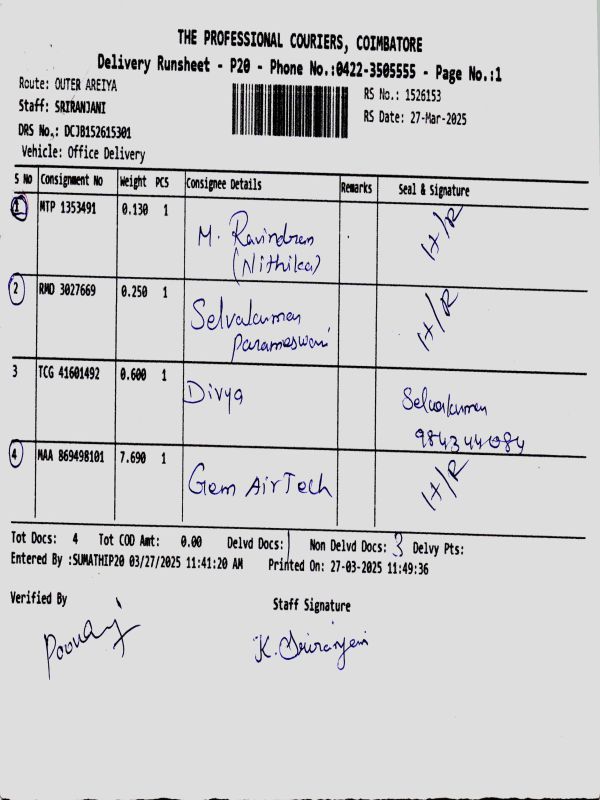 THE PROFESSIONAL COURIERS, COIMBATORE
Delivery Runsheet - P20 - Phone No.:0422-3505555 - Page No.:1
Route: OUTER AREIYA
RS No.: 1526153
Staff: SRIRANJANI
RS Date: 27-Mar-2025
DRS No.: DCJB152615301
Vehicle: Office Delivery
S No Consignment No Weight PCS Consignee Details Remarks Seal & Signature
1 MTP 1353491 0.130 1 M. Ravindran I+/R
(Nithika)
2 RMD 3027669 0.250 1 Selvakumar I+/R
Parameswari
3 TCG 41601492 0.600 1 Divya Selvakumar
984344084
4 MAA 869498101 7.690 1 Gem AirTech I+/R
Tot Docs: 4 Tot COD Amt: 0.00 Delvd Docs: 1 Non Delvd Docs: 3 Delvy Pts:
Entered By :SUMATHIP20 03/27/2025 11:41:20 AM Printed On: 27-03-2025 11:49:36
Verified By Staff Signature
K. Sriranjani